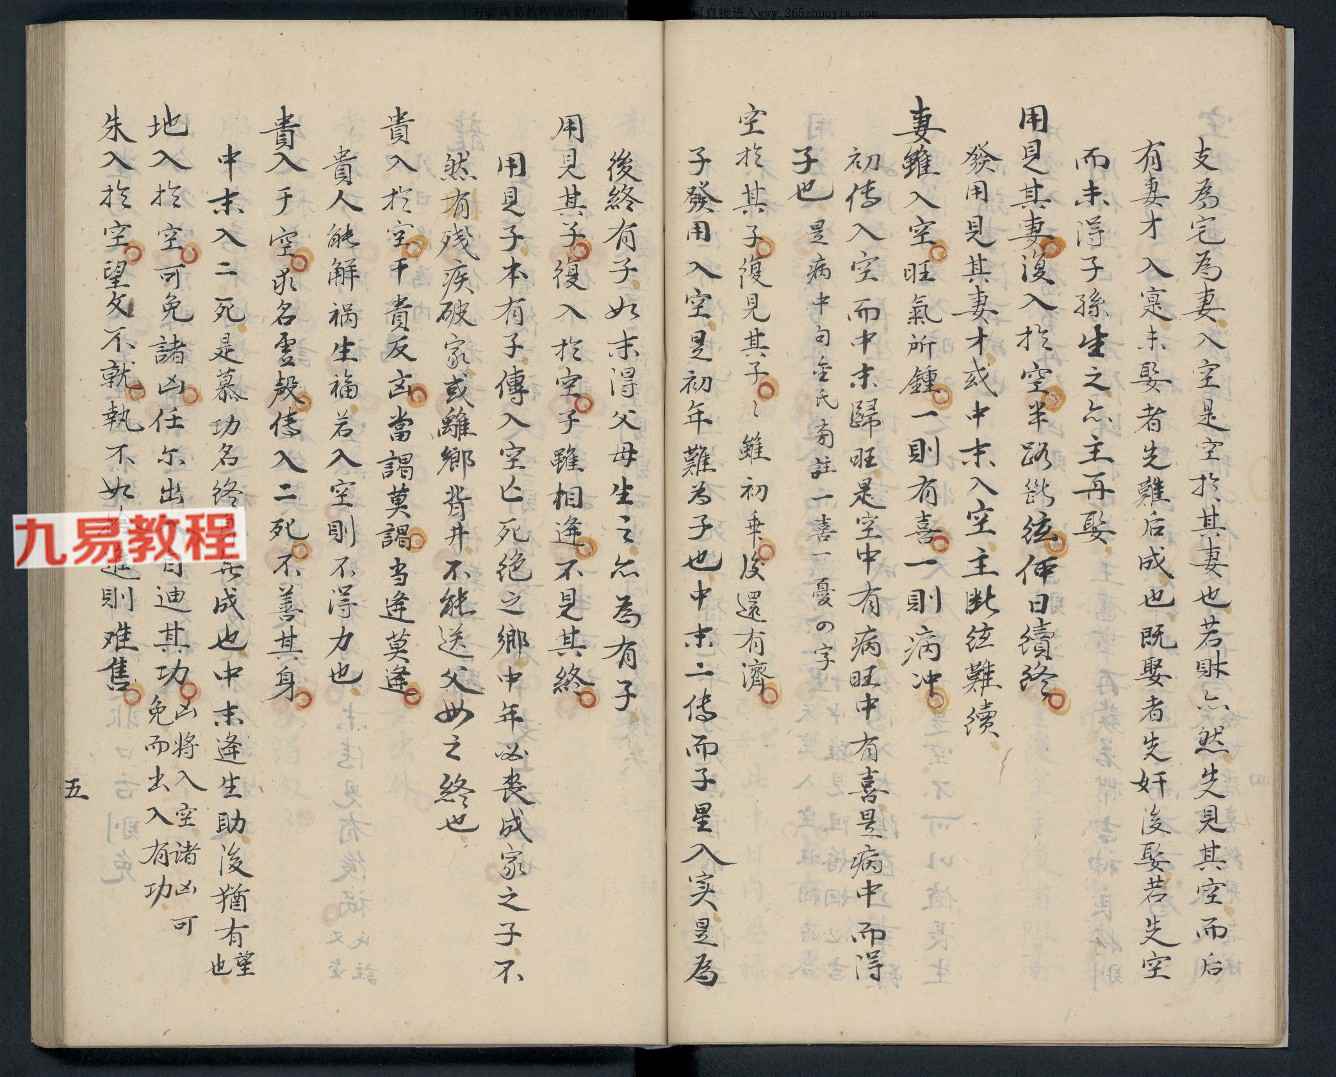 支為宅為妻入空是空於其妻也若財亦然先見其空而后
有妻才入寔未娶者先難后成也既娶者先奸後娶若先空
而未得子孫生之亦主再娶
用見其妻復入於空半路斷絃仲日續終
發用見其妻才或中末入空主斷絃難續
妻雖入空旺氣所鍾一則有喜一則病冲
初傳入空而中末歸旺是空中有病旺中有喜是病中而得
子也 是病中句 氏 註一喜一憂の字
空於其子復見其子〻雖初乖後還有濟
子發用入空是初年難為子也中末二傳而子星入实是為
後終有子如未得父母生之亦為有子
用見其子復入於空子雖相逢不見其終
用見子本有子傳入空亡死絕之鄉中年必喪成家之子不
然有殘疾破家或離鄉背井不能送父母之終也
貴入於空干貴反凶當謁莫謁当逢莫逢
貴人能解禍生福若入空則不得力也
貴入于空求名虛殼傳入二死不善其身
中末入二死是慕功名終 成也中末逢生助後猶有望也
地入於空可免諸凶任尔出 迪其功凶將入空諸凶可免而出入有功
朱入於空望文不就執不如 則难售
五
九易教程